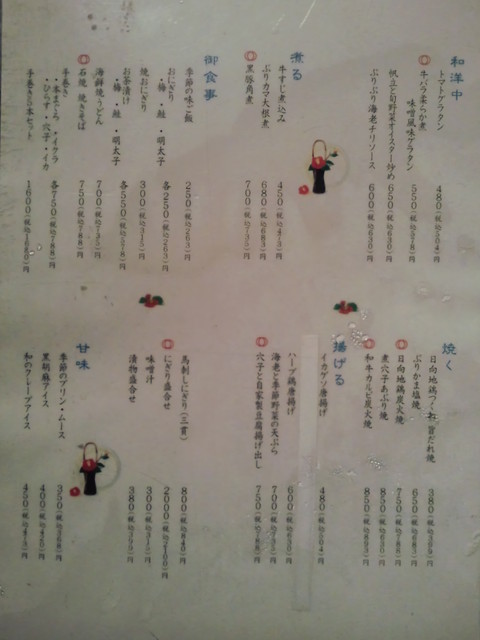 和洋中
トマトグラタン 480(税込504)円
牛バラ柔らか煮
味噌風味グラタン 550(税込578)円
帆立と旬野菜オイスター炒め 600(税込630)円
ぷりぷり海老チリソース 600(税込630)円
煮る
牛すじ煮込み 450(税込473)円
ぶりカマ大根煮 680(税込683)円
黒豚角煮 700(税込735)円
御食事
季節の味ご飯 250(税込263)円
おにぎり
・梅・鮭・明太子 各250(税込263)円
焼おにぎり 300(税込315)円
お茶漬け
・梅・鮭・明太子 各550(税込578)円
海鮮うどん 700(税込735)円
石焼 焼きそば 750(税込788)円
手巻き
・本まぐろ・イクラ
・ひらす・穴子・イカ 各750(税込788)円
手巻き5本セット 1600(税込1680)円
焼く
日向地鶏つくね 旨だれ焼 380(税込399)円
ぶりかま塩焼 650(税込683)円
日向地鶏炭火焼 750(税込788)円
煮穴子あぶり焼 850(税込630)円
和牛カルビ炭火焼 850(税込893)円
揚げる
イカゲソ唐揚げ 480(税込504)円
ハーブ鶏唐揚げ 600(税込630)円
海老と季節野菜の天ぷら 700(税込735)円
穴子と自家製豆腐揚げ出し 750(税込788)円
馬刺しにぎり(三貫) 800(税込840)円
にぎり盛合せ 2000(税込2100)円
味噌汁 300(税込315)円
漬物盛合せ 380(税込399)円
甘味
季節のプリン・ムース 350(税込368)円
黒胡麻アイス 400(税込420)円
和のクレープアイス 450(税込473)円